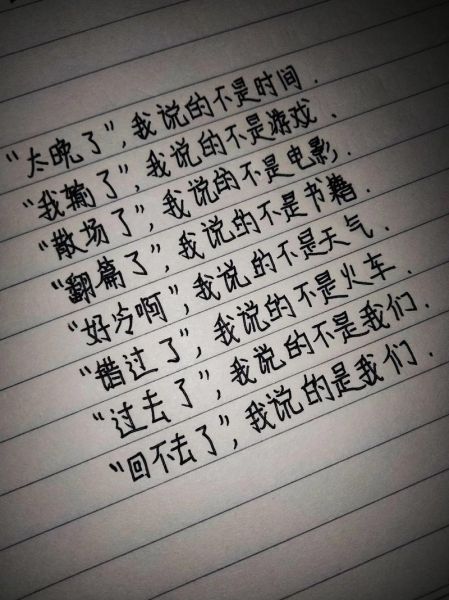 “太晚了”,我说的不是时间.
“我输了”,我说的不是游戏.
“散场了”,我说的不是电影.
“翻篇了”,我说的不是书籍.
“好冷啊”,我说的不是天气.
“错过了”,我说的不是火车.
“过去了”,我说的不是我们.
“回不去了”,我说的是我们.